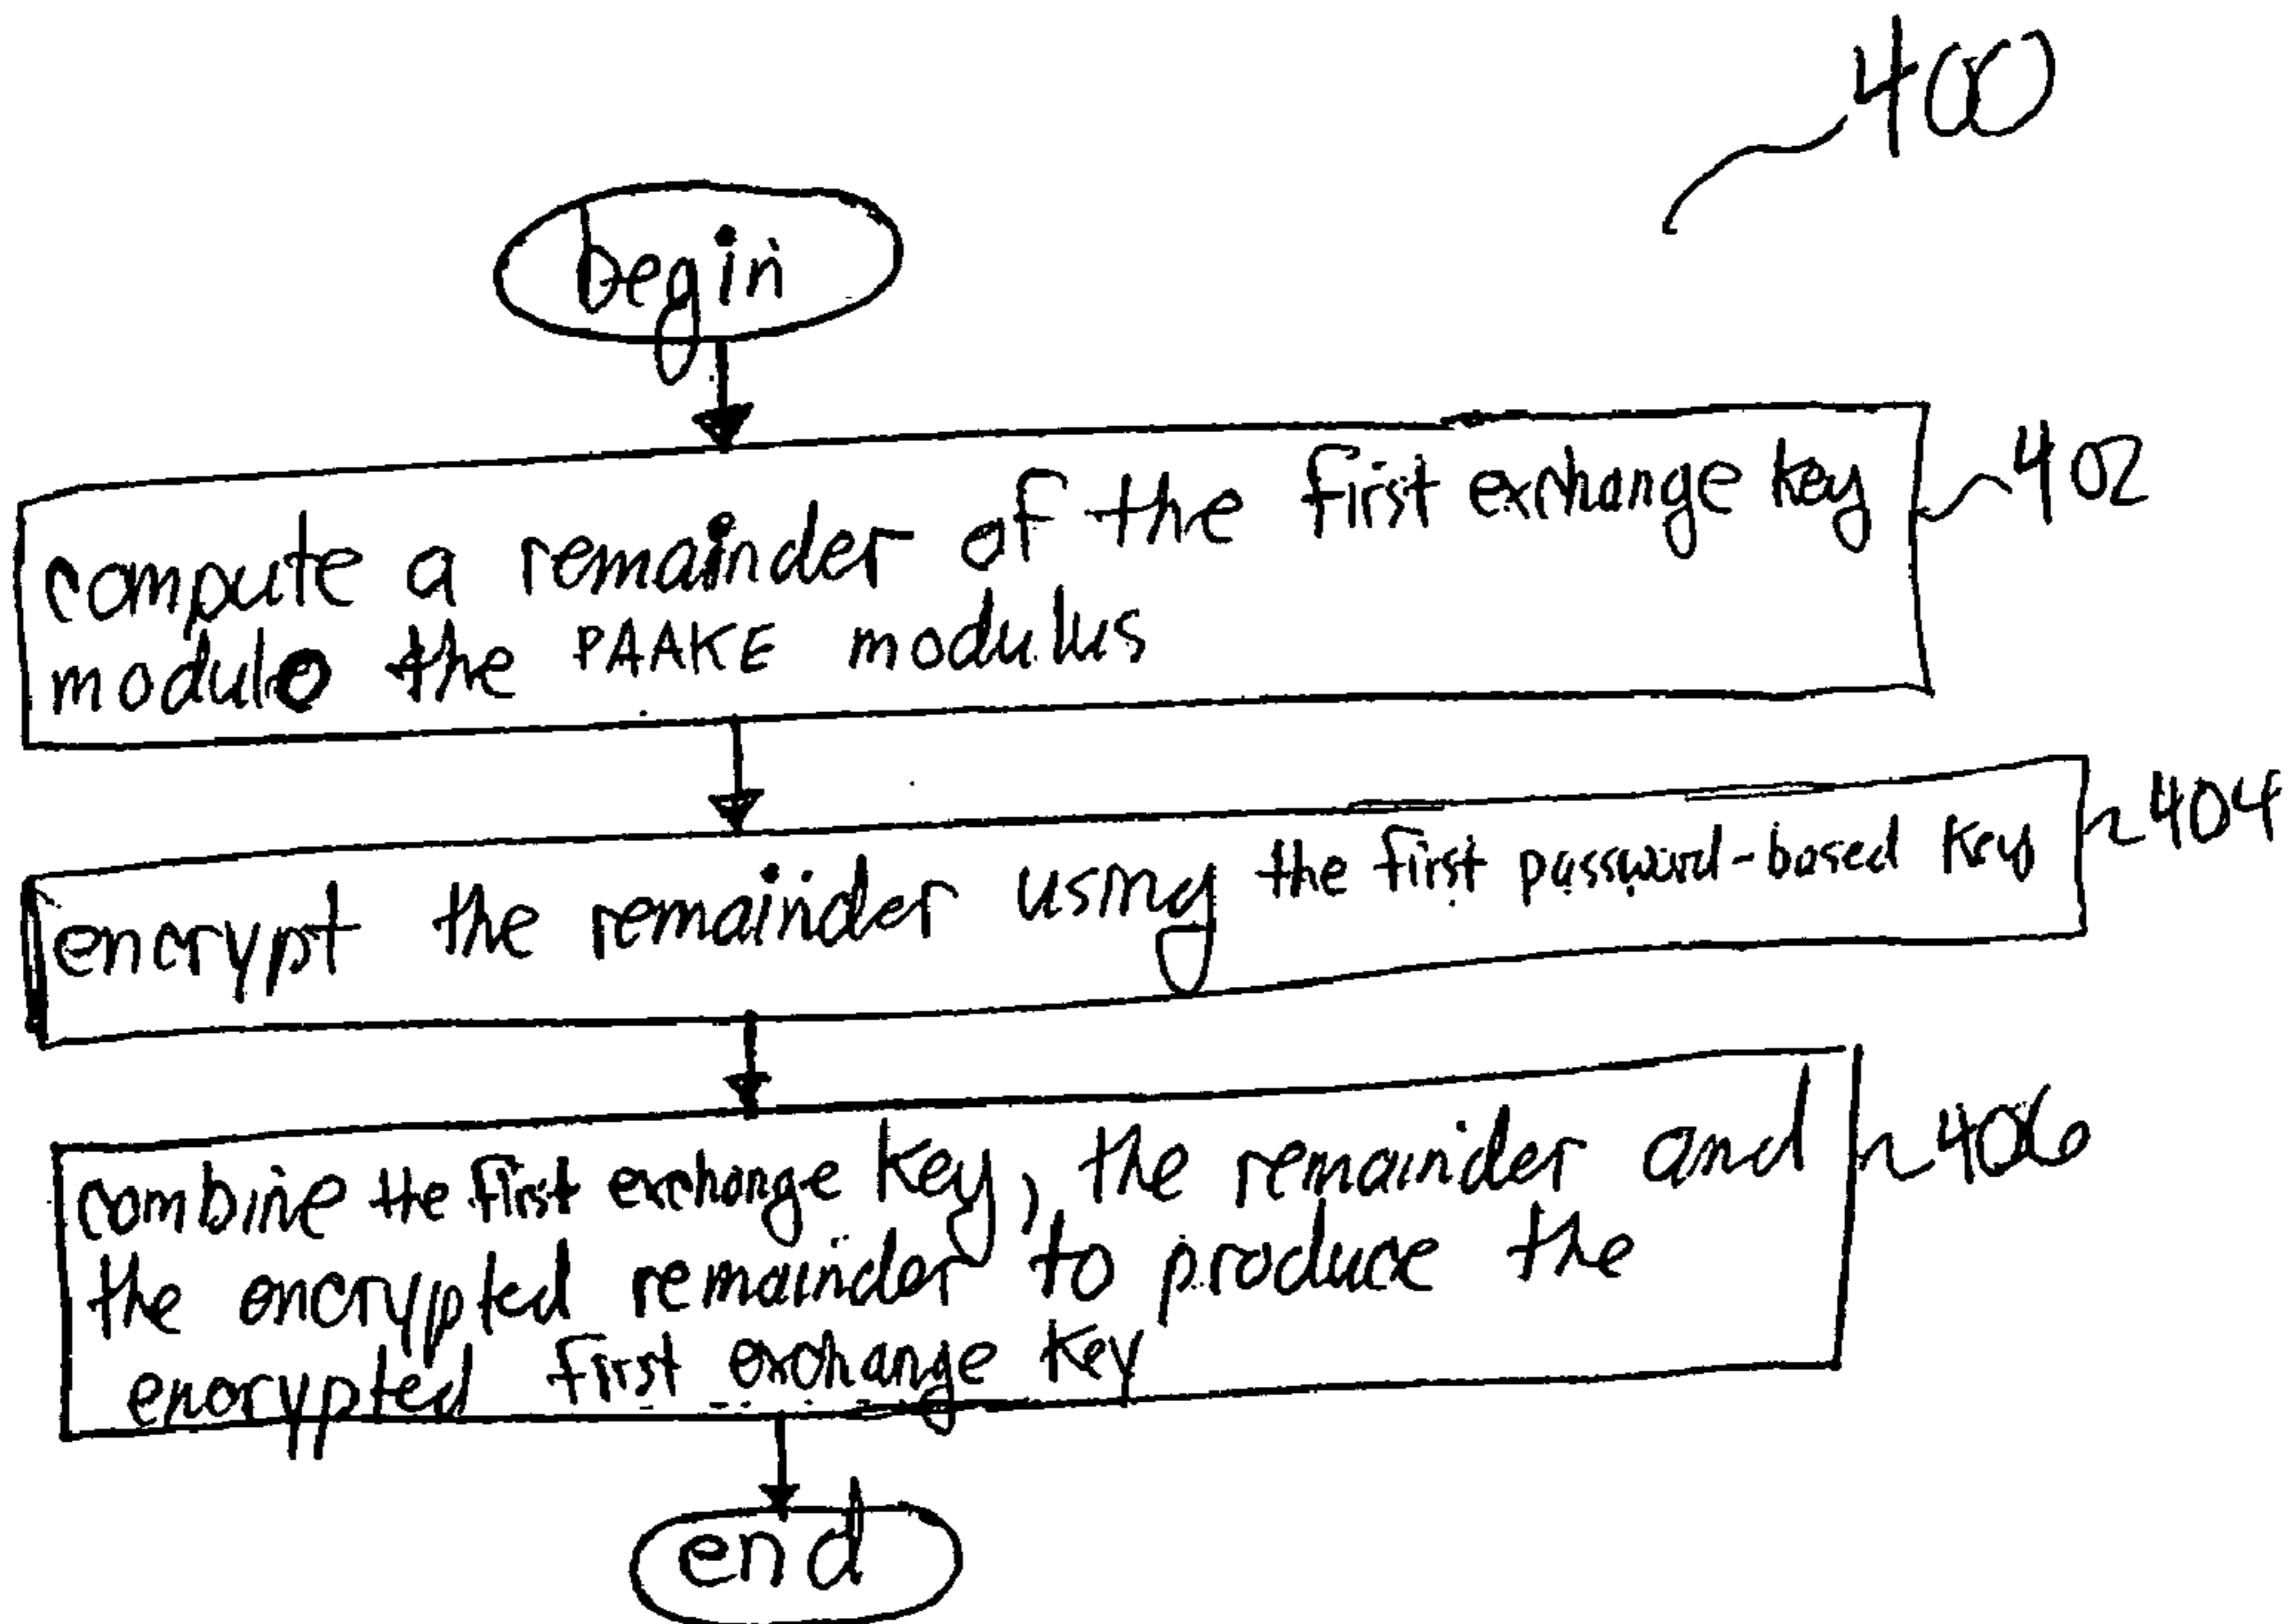 400
begin
compute a remainder of the first exchange key
modulo the PAAKE modulus
402
encrypt the remainder using the first password-based key
404
combine the first exchange key, the remainder and
the encrypted remainder to produce the
encrypted first exchange key
406
end